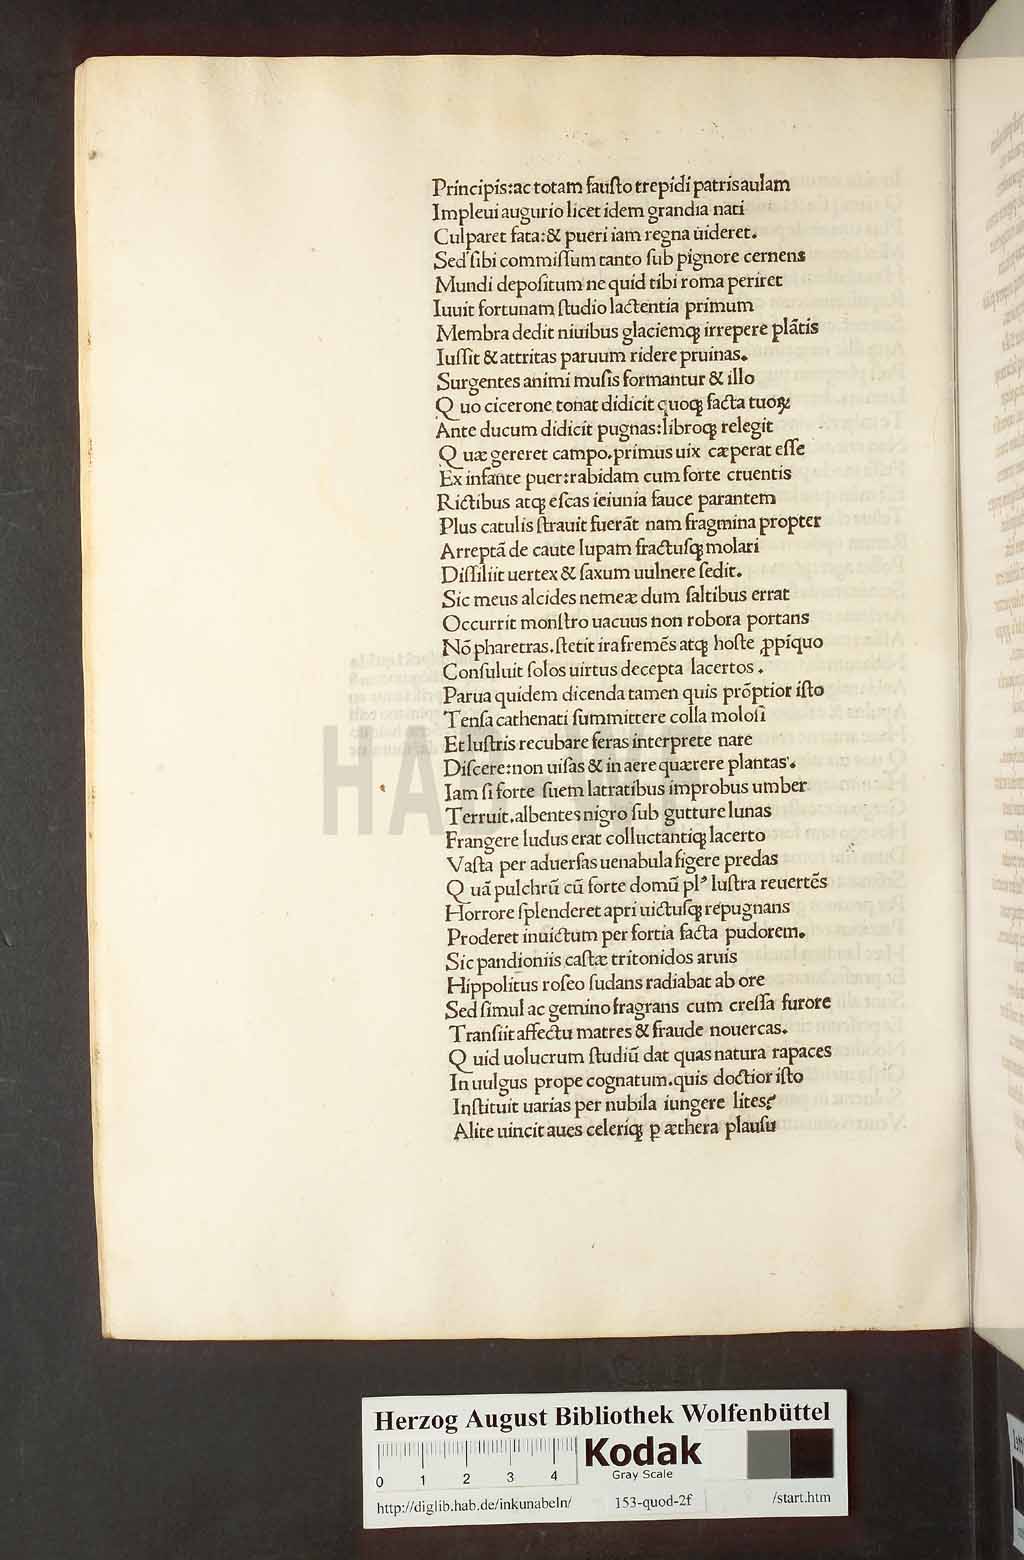 Principis:ac totam fauſto trepidi patris aulam
Impleui augurio licet idem grandia nati
Culparet fata:& pueri iam regna uideret.
Sed ſibi commiſſum tanto ſub pignore cernens
Mundi depoſitum ne quid tibi roma periret
Iuuit fortunam ſtudio lactentia primum
Membra dedit niuibus glaciemqꝫ irrepere plãtis
Iuſſit & attritas paruum ridere pruinas.
Surgentes animi muſis formantur & illo
Quo cicerone tonat didicit quoqꝫ facta tuoꝝ
Ante ducum didicit pugnas:libroqꝫ relegit
Quæ gereret campo.primus uix cæperat eſſe
Ex infante puer:rabidam cum forte cruentis
Rictibus atqꝫ eſcas ieiunia fauce parantem
Plus catulis ſtrauit fuerãt nam fragmina propter
Arreptã de caute lupam fractuſqꝫ molari
Diſſiliit uertex & ſaxum uulnere ſedit.
Sic meus alcides nemeæ dum ſaltibus errat
Occurrit monſtro uacuus non robora portans
Nõ pharetras.ſtetit ira fremẽs atqꝫ hoſte ꝓpīquo
Conſuluit ſolos uirtus decepta lacertos.
Parua quidem dicenda tamen quis prõptior iſto
Tenſa cathenati ſummittere colla moloſi
Et luſtris recubare feras interprete nare
Diſcere:non uiſas & in aere quærere plantas.
Iam ſi forte ſuem latratibus improbus umber
Terruit.albentes nigro ſub gutture lunas
Frangere ludus erat colluctantiqꝫ lacerto
Vaſta per aduerſas uenabula figere predas
Quã pulchrũ cũ forte domũ plꝰ luſtra reuertẽs
Horrore ſplenderet apri uictuſqꝫ repugnans
Proderet inuictum per fortia facta pudorem.
Sic pandioniis caſtæ tritonidos aruis
Hippolitus roſeo ſudans radiabat ab ore
Sed ſimul ac gemino fragrans cum creſſa furore
Tranſiit affectu matres & fraude nouercas.
Quid uolucrum ſtudiũ dat quas natura rapaces
In uulgus prope cognatum.quis doctior iſto
Inſtituit uarias per nubila iungere lites?
Alite uincit aues celeriqꝫ ꝑ æthera plauſu
HAB-WF
Herzog August Bibliothek Wolfenbüttel
0 1 2 3 4
Kodak
Gray Scale
http://diglib.hab.de/inkunabeln/ 153-quod-2f /start.htm